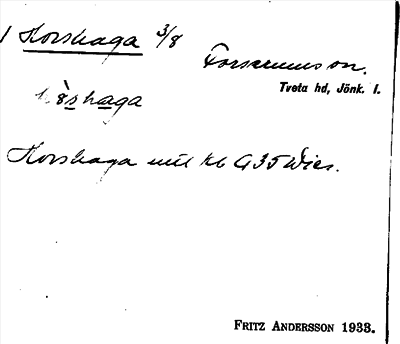 1 Horshaga 3/8
Forserums sn.
Tveta hd, Jönk. l.
Horshaga mtl kb G35 Wies.
FRITZ ANDERSSON 1933.